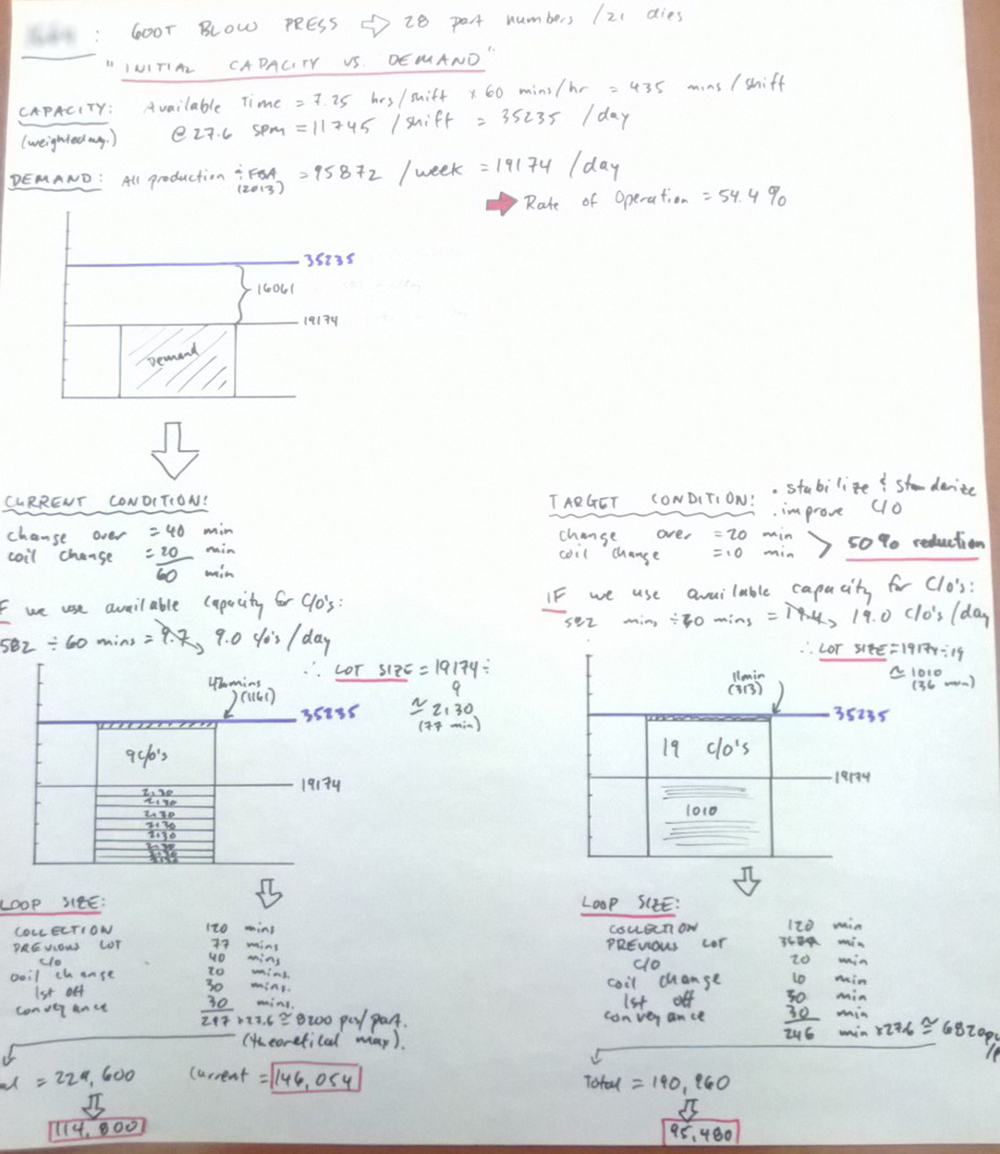 : 600T BLOW PRESS ⇨ 28 part numbers /21 dies
"INITIAL CAPACITY VS. DEMAND"
CAPACITY: Available Time = 7.25 hrs/shift x 60 mins/hr = 435 mins/shift
(weighted avg.) @ 27.6 spm = 11745 /shift = 35235 /day
DEMAND: All production ÷ FGA = 95872 /week = 19174 /day
(2013)
Rate of Operation = 54.4 %
35235
16061
19174
Demand
CURRENT CONDITION:
change over = 40 min
coil change = 20 min
60 min
IF we use available capacity for C/O's:
582 ÷ 60 mins = 9.7, 9.0 c/o's / day
∴ LOT SIZE = 19174 ÷
9
≃ 2130
(77 min)
42 mins
(1161)
35235
9 c/o's
19174
2130
2130
2130
2130
2130
2130
2130
2130
LOOP SIZE:
COLLECTION 120 mins
PREVIOUS LOT 77 mins
C/O 40 mins
coil change 20 mins.
1st off 30 mins.
conveyance 30 mins.
297 x 27.6 ≅ 8200 pcs/part.
(theoretical max).
= 229,600 Current = 146,054
114,800
TARGET CONDITION:
• stabilize & standarize
• improve C/O
change over = 20 min
coil change = 10 min
50% reduction
IF we use available capacity for C/O's:
582 mins ÷ 30 mins = 19.4, 19.0 C/O's / day
∴ LOT SIZE = 19174 ÷ 19
≃ 1010
(36 min)
11 min
(313)
35235
19 C/O's
19174
1010
LOOP SIZE:
COLLECTION 120 min
PREVIOUS LOT 36 min
C/O 20 min
coil change 10 min
1st off 30 min
conveyance 30 min
246 min x 27.6 ≅ 6820
Total = 190,960
95,480